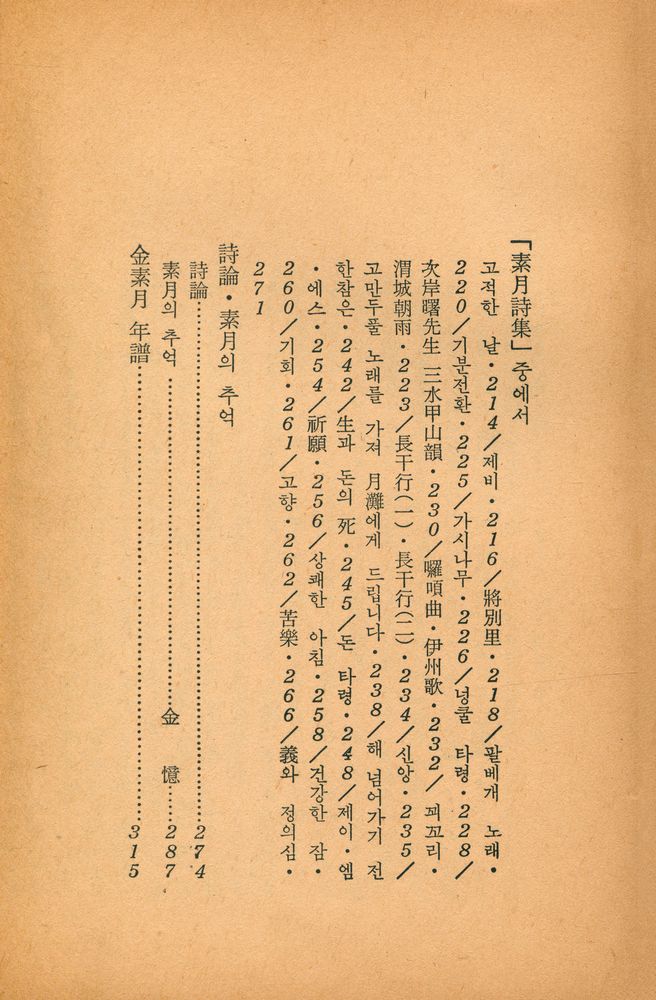 「素月詩集」 중에서
고적한 날・214/제비・216/將別里・218/팔베개 노래・
220/기분전환・225/가시나무・226/넝쿨 타령・228/
次岸曙先生 三水甲山韻・230/囉嗊曲・伊州歌・232/ 꾀꼬리・
渭城朝雨・223/長干行(一)・長干行(二)・234/신앙・235/
고만두풀 노래를 가져 月灘에게 드립니다・238/해 넘어가기 전
한참은・242/生과 돈의 死・245/돈 타령・248/제이・엠
・에스・254/祈願・256/상쾌한 아침・258/건강한 잠・
260/기회・261/고향・262/苦樂・266/義와 정의심・
271
詩論・素月의 추억
詩論……274
素月의 추억……金 憶……287
金素月 年譜……315